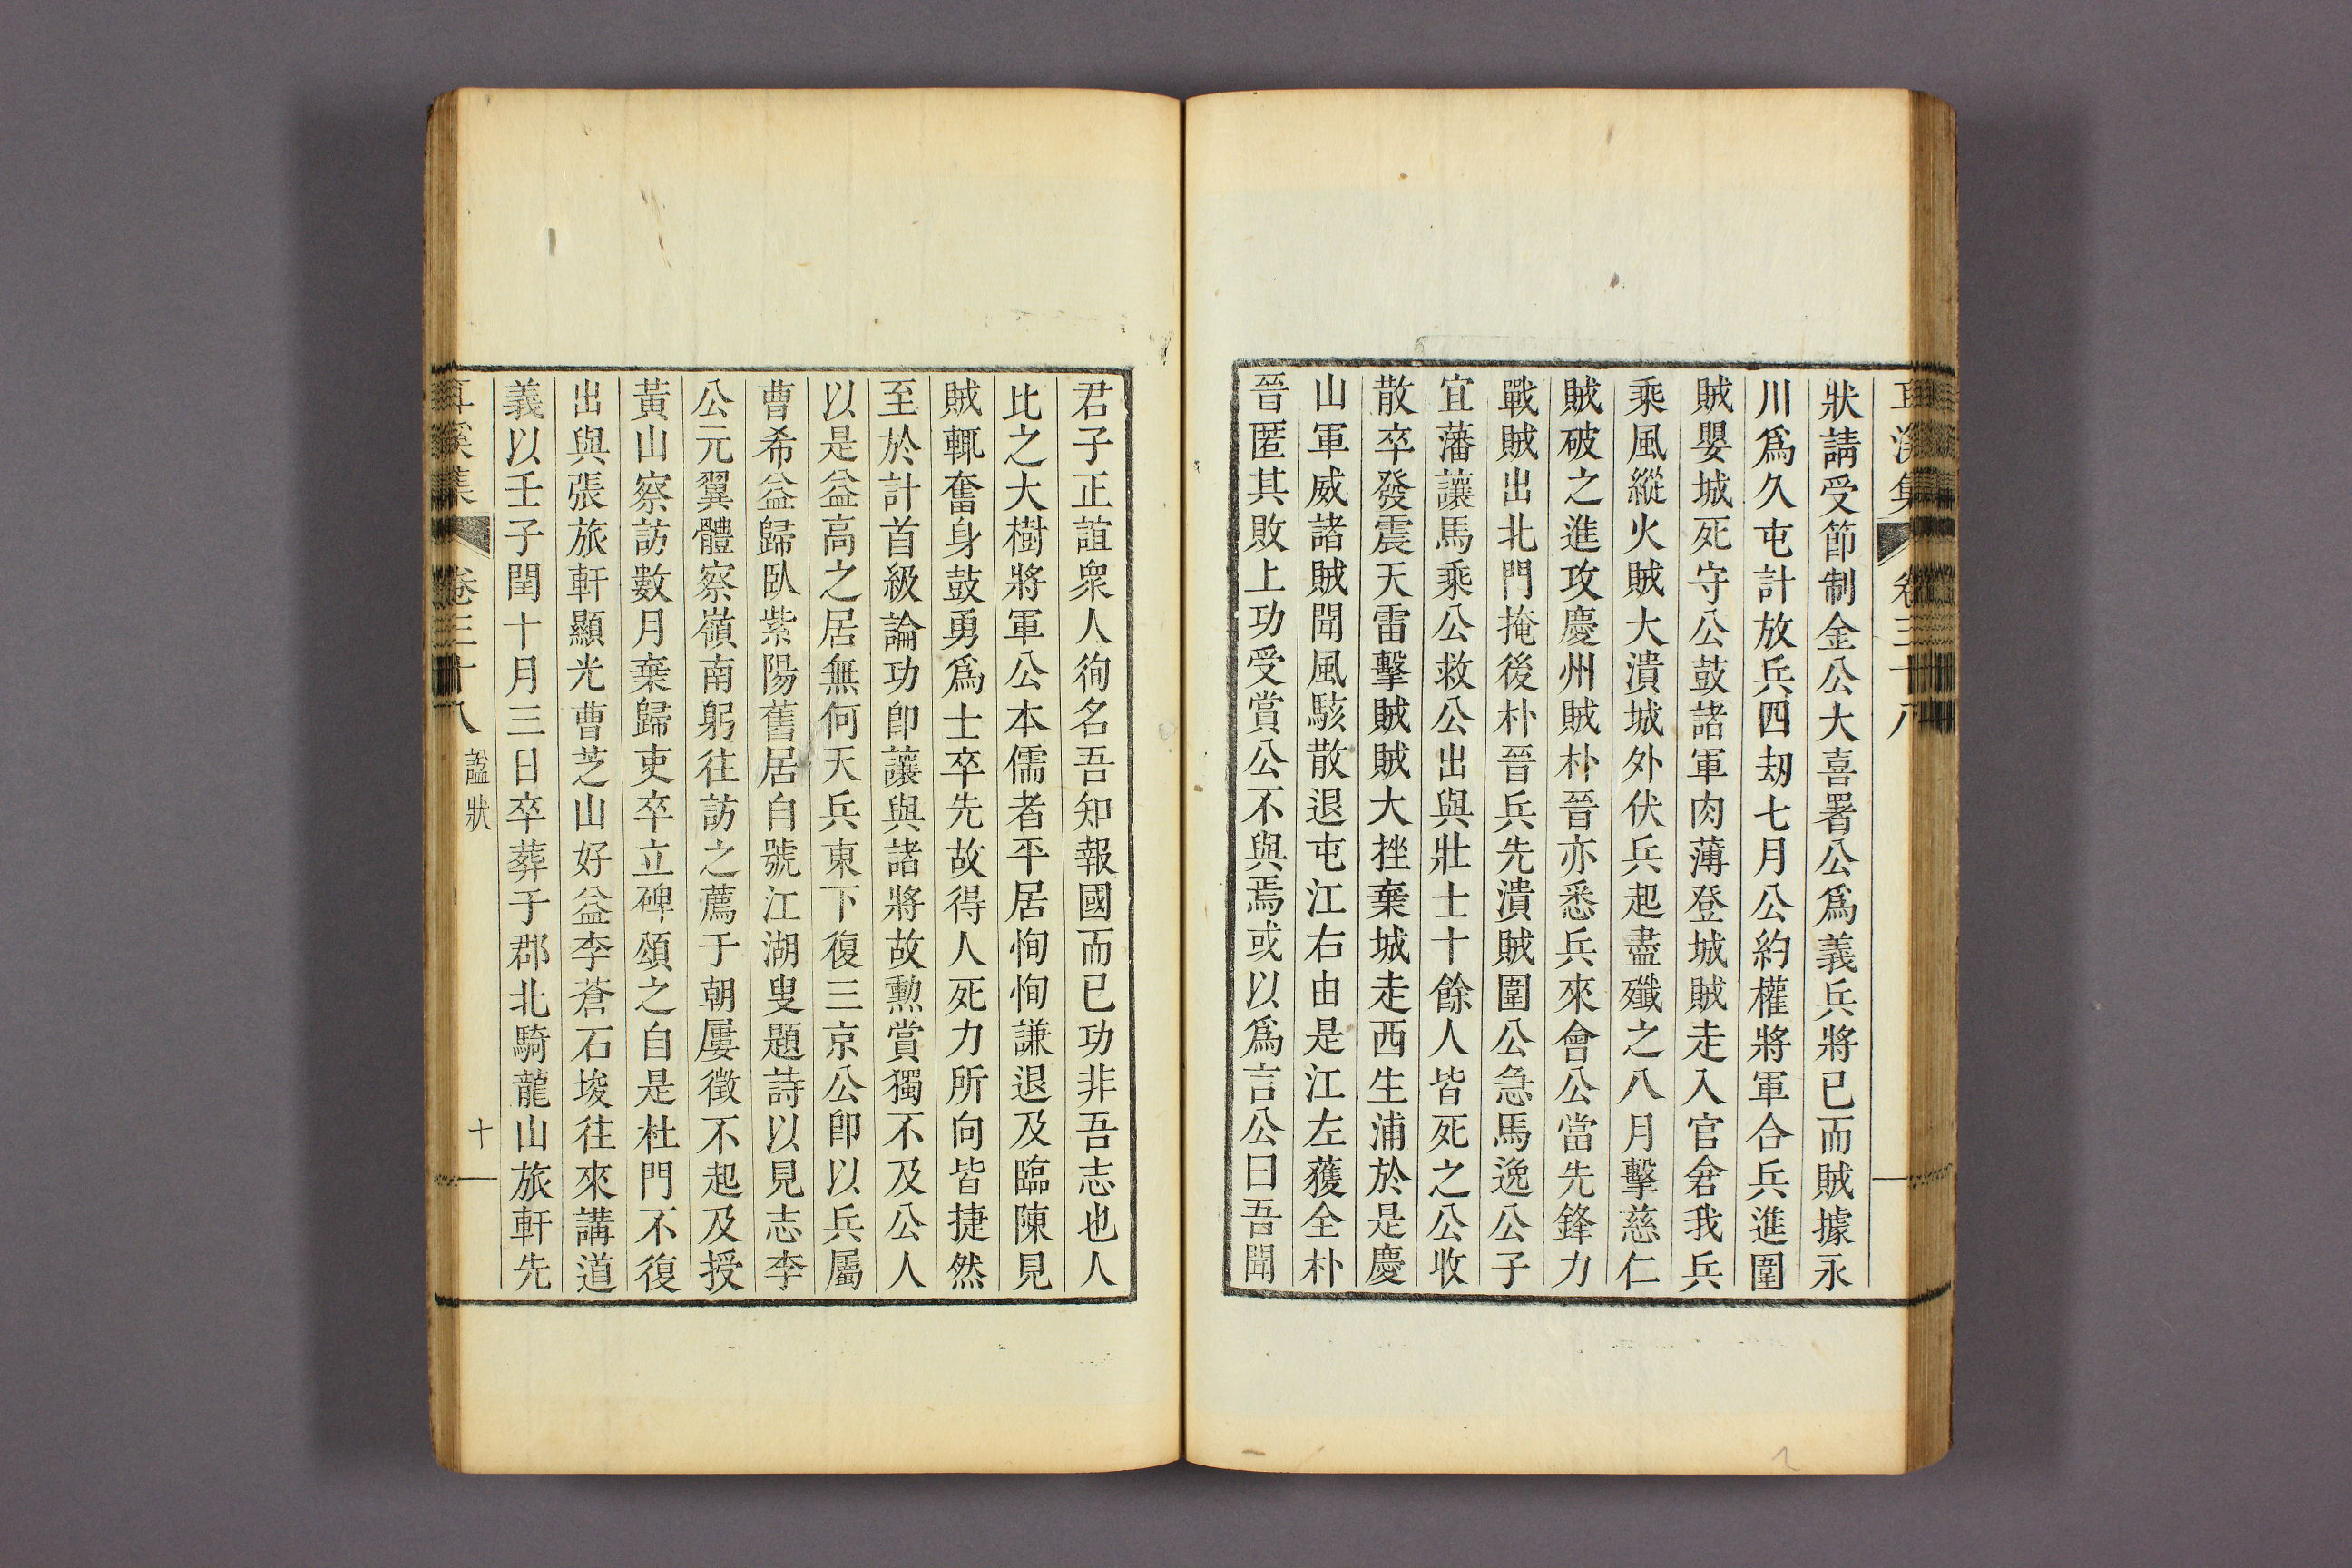 耳溪集 卷三十八
狀請受節制金公大喜署公爲義兵將已而賊據永
川爲久屯計放兵四刼七月公約權將軍合兵進圍
賊嬰城死守公鼓諸軍肉薄登城賊走入官倉我兵
乘風縱火賊大潰城外伏兵起盡殲之八月擊慈仁
賊破之進攻慶州賊朴晉亦悉兵來會公當先鋒力
戰賊出北門掩後朴晉兵先潰賊圍公急馬逸公子
宜藩讓馬乘公救公出與壯士十餘人皆死之公收
散卒發震天雷擊賊賊大挫棄城走西生浦於是慶
山軍威諸賊聞風駭散退屯江右由是江左獲全朴
晉匿其敗上功受賞公不與焉或以爲言公曰吾聞
君子正誼衆人徇名吾知報國而已功非吾志也人
比之大樹將軍公本儒者平居恂恂謙退及臨陳見
賊輒奮身鼓勇爲士卒先故得人死力所向皆捷然
至於計首級論功卽讓與諸將故勲賞獨不及公人
以是益高之居無何天兵東下復三京公卽以兵屬
曹希益歸臥紫陽舊居自號江湖叟題詩以見志李
公元翼體察嶺南躬往訪之薦于朝屢徵不起及授
黃山察訪數月棄歸吏卒立碑頌之自是杜門不復
出與張旅軒顯光曹芝山好益李蒼石埈往來講道
義以壬子閏十月三日卒葬于郡北騎龍山旅軒先
耳溪集 卷三十八 諡狀 十